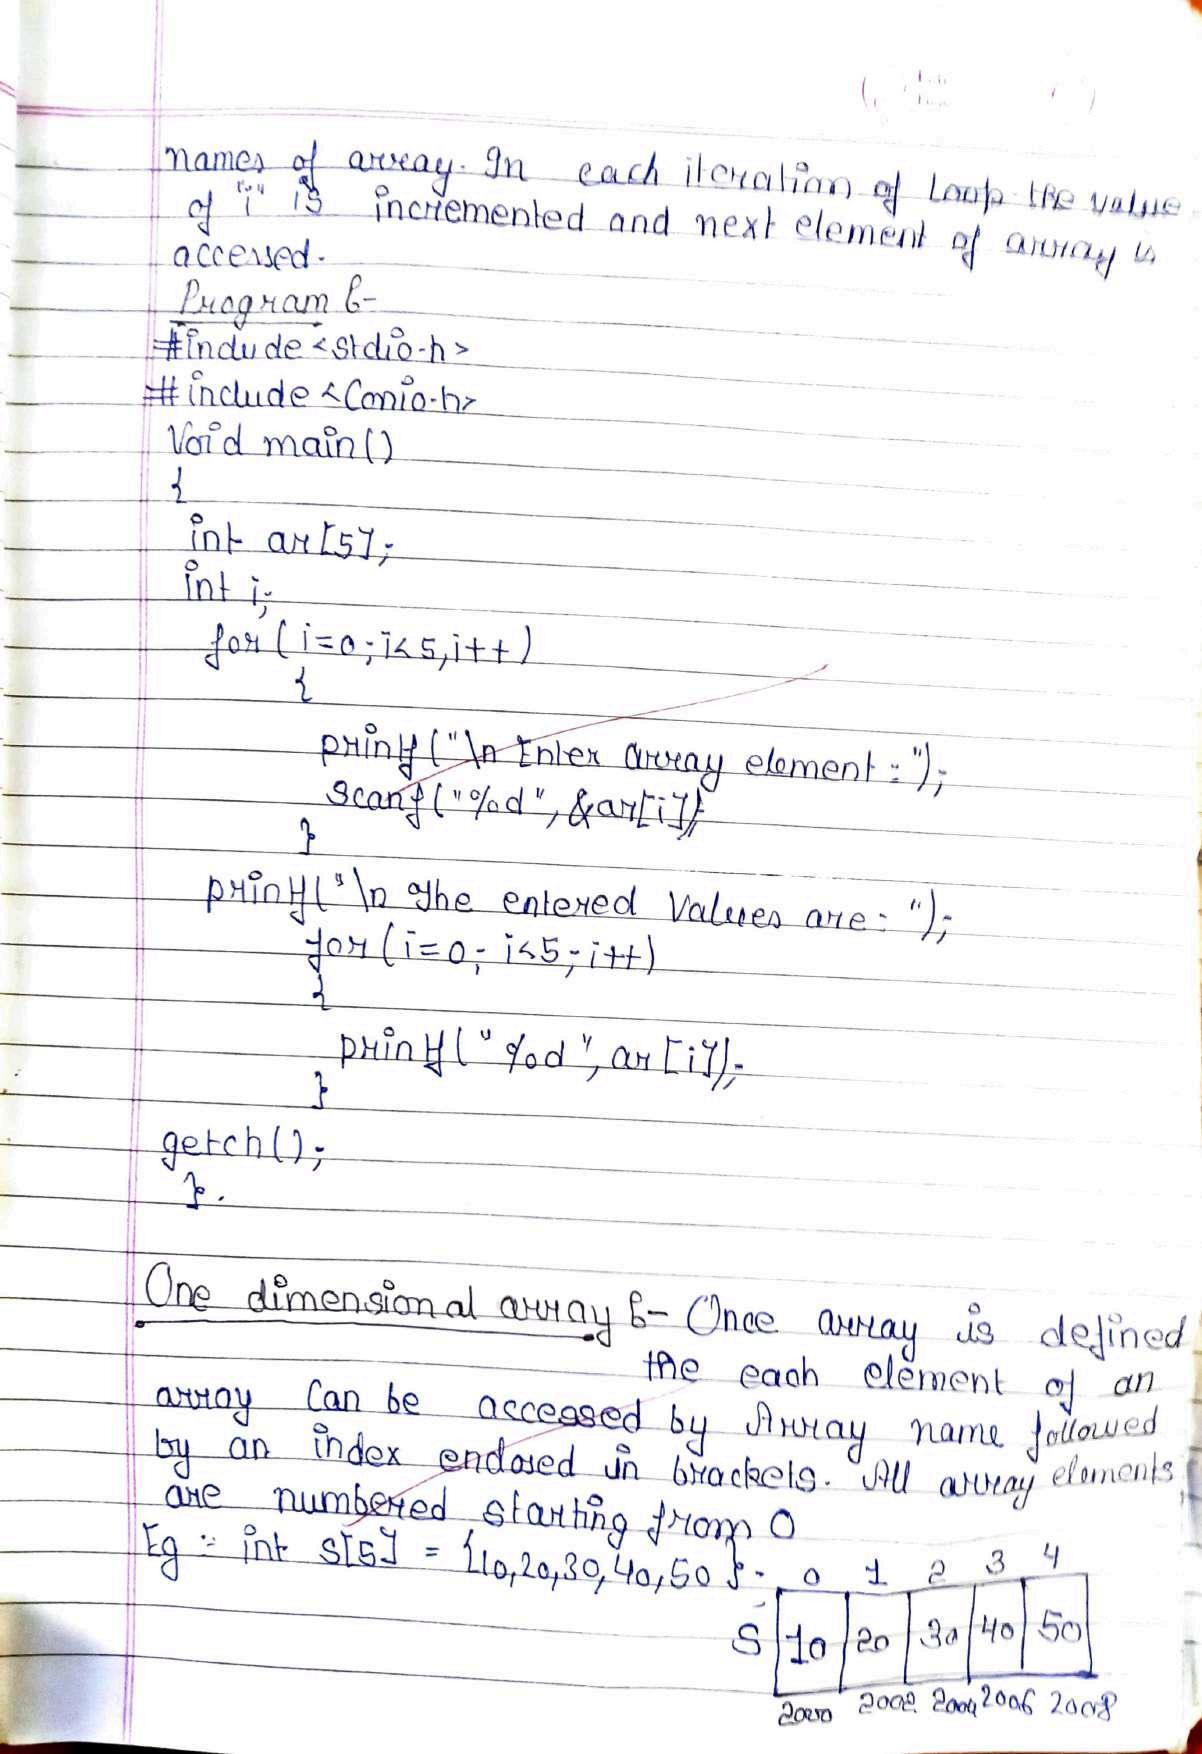 names of array. In each iteration of Loop the value
of "i" is incremented and next element of array is
accessed.
Program :-
#include <stdio.h>
#include <Conio.h>
Void main()
{
int ar[5];
int i;
for(i=0;i<5,i++)
{
printf("\n Enter array element:");
scanf("%d",&ar[i]);
}
printf("\n The entered Values are: ");
for(i=0; i<5;i++)
{
printf("%d",ar[i]);
}
getch();
}.
One dimensional array :- Once array is defined
the each element of an
array Can be accessed by Array name followed
by an index enclosed in brackets. All array elements
are numbered starting from 0
Eg :- int S[5] = {10,20,30,40,50}.
0 1 2 3 4
S 10 20 30 40 50
2000 2002 2004 2006 2008